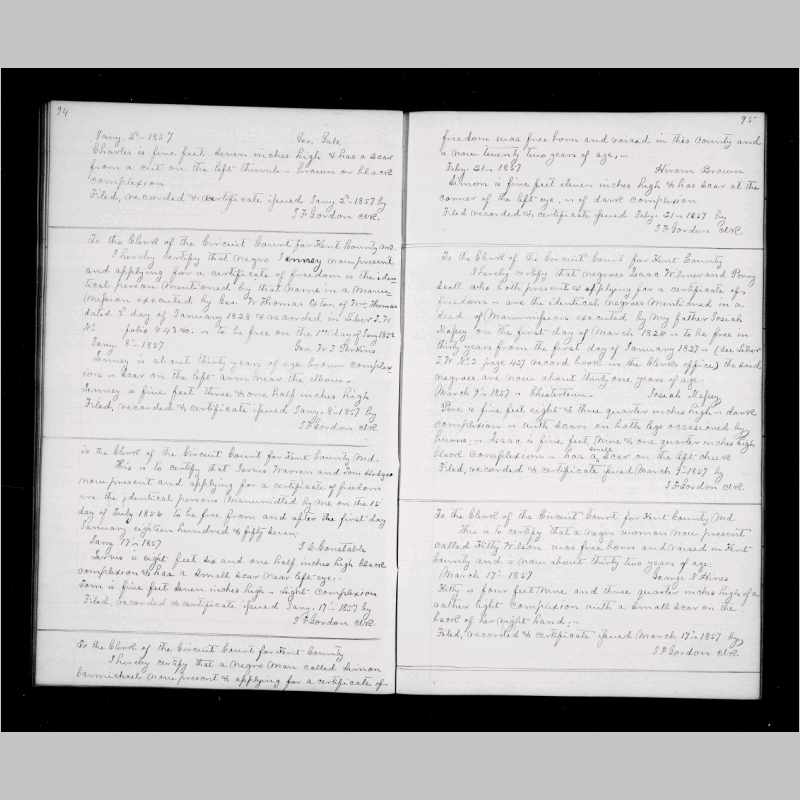 94
Jany. 2d 1857 Geo. Gale
Charles is five feet seven inches high & has a scar
from a cut on the left thumb - brown or black
complexion
Filed, recorded & certificate issued Jany 2d 1857 by
S F Gordon clk.
To the Clerk of the Circuit Court for Kent County Md.
I hereby certify that negro Jenney now present
and applying for a certificate of freedom is the iden-
tical person mentioned by that name in a Manu-
mission executed by Geo. W Thomas of Wm Thomas
dated 8th day of January 1828 & recorded in Liber T. W
No folio 243 &c. to be free on the 1st day of Jany 1852
Jany. 8th 1857 Geo. W. T. Perkins
Jenney is about thirty years of age brown complex-
ion - scar on the left arm near the elbow -
Jenney is five feet three & one half inches high
Filed, recorded & certificate issued Jany. 8th 1857 by
S F Gordon clk
To the Clerk of the Circuit Court for Kent County Md.
This is to certify that Jarvis Freeman and Tom Hodges
now present and applying for a certificate of freedom
are the identical persons Manumitted by me on the 15
day of July 1856 to be free from and after the first day
January eighteen hundred & fifty seven
Jany 17th 1857 T. S. Constable
Jarvis is eight feet six and one half inches high black
complexion & has a small scar near left eye.
Tom is five feet seven inches high - light complexion
Filed, recorded & certificate issued Jany. 17th 1857 by
S F Gordon clk
To the Clerk of the Circuit Court for Kent County
I hereby certify that a negro man called Simon
Carmichael now present & applying for a certificate of
95
freedom was free born and raised in this County and
is now twenty two years of age,
Feby. 21st 1857 Hiram Brown
Simon is five feet eleven inches high & has scar at the
corner of the left eye, is of dark complexion
Filed recorded & certificate issued Feby. 21st 1857 by
S F Gordon Clk
To the Clerk of the Circuit Court for Kent County
I hereby certify that negroes Isaac Wilmer and Perry
who both present & applying for a certificate of
freedom - are the identical negroes mentioned in a
deed of Manumission executed by my father Josiah
Massey on the first day of March 1826 - to be free in
thirty years from the first day of January 1827 - (see Liber
T. W No 2 page 427 record book in the Clerks office) the said
negroes are now about thirty one years of age.
March 9th 1857 - Chestertown. Josiah Massey
Perry is five feet eight & three quarter inches high - dark
complexion - with scars on both legs occasioned by
burns - Isaac is five feet, nine & one quarter inches high
black complexion - has a small scar on the left cheek
Filed, recorded & certificate issued March 9th 1857 by
S F Gordon clk
To the Clerk of the Circuit Court for Kent County Md
This is to certify that a negro woman now present
called Kitty Wilson was free born and raised in Kent
County and is now about thirty two years of age.
March 17th 1857 George S Hines
Kitty is four feet nine and three quarter inches high of a
rather light complexion with a small scar on the
back of her right hand;
Filed, recorded & certificate issued March 17th 1857 by
S F Gordon clk